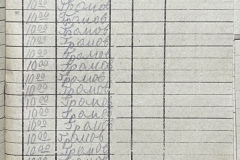 10 00 Громов
10 00 Громов
10 00 Громов
10 00 Громов
10 00 Громов
10 00 Громов
10 00 Громов
10 00 Громов
10 00 Громов
10 00 Громов
10 00 Громов
10 00 Громов
10 00 Громов